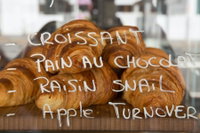 - CROISSANT
PAIN AU CHOCOLAT
- RAISIN SNAIL
- Apple TURNOVER